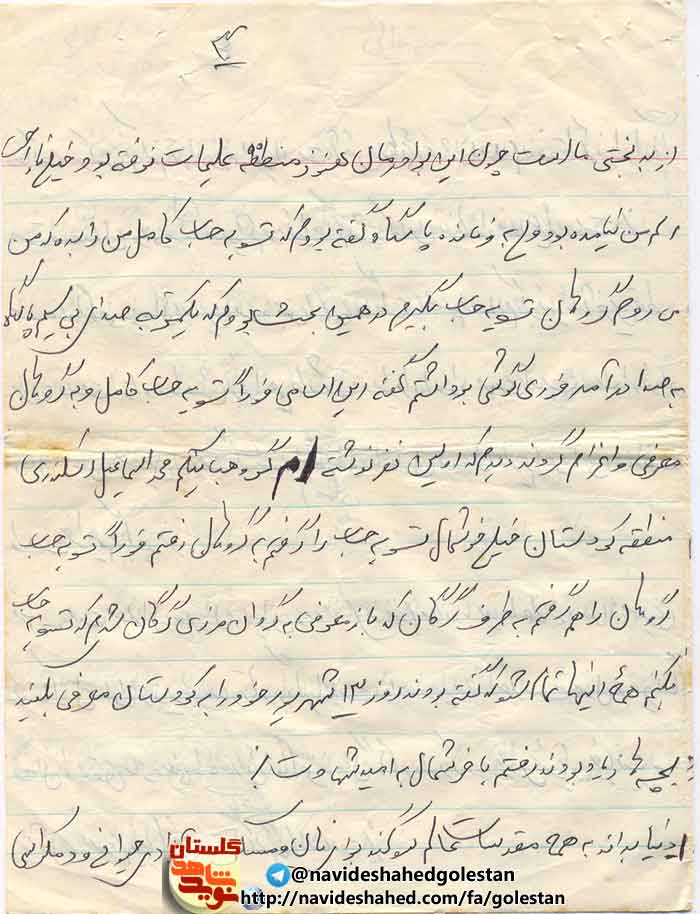 ۳
از بدبختی ما رفت چون این بود فرمان هنوز منطقه علیمات نرفته بود و خیلی ناراحتی
اسم من نیامده بود و به فرمانده پاسگاه گفته بودم که تسویه حساب کامل من را بده که من
می روم گروهان تسویه حساب بگیرم در همین بحث بودم که یکمرتبه صدای بی سیم پاسگاه
به صدا درآمد فوری گوشی برداشتم گفته این اسامی فوراً تسویه حساب کامل و به گروهان
معرفی و اعزام گردند دیدم که اولین نفر نوشته ام گروهبان یکم محمد اسماعیل اسکندری
منطقه کردستان خیلی خوشحال تسویه حساب را گرفتم به گروهان رفتم فوراً تسویه حساب
گروهان را هم گرفتم به طرف گرگان که باز معرفی به گردان مرزی گرگان شدیم که تسویه حساب
بکنم همۀ اینها تمام شد که گفته بودند روز ۱۳ شهریور خود را به کردستان معرفی بکنید
بچه ها زیاد بودند رفتم با خوشحال به امید شهادت
دنیا بداند به همه مقدسات عالم سوگند برای نان و مسکن آزادی حیوانی و دمکراسی
گلستان
نوید شاهد
@navideshahedgolestan
http://navideshahed.com/fa/golestan